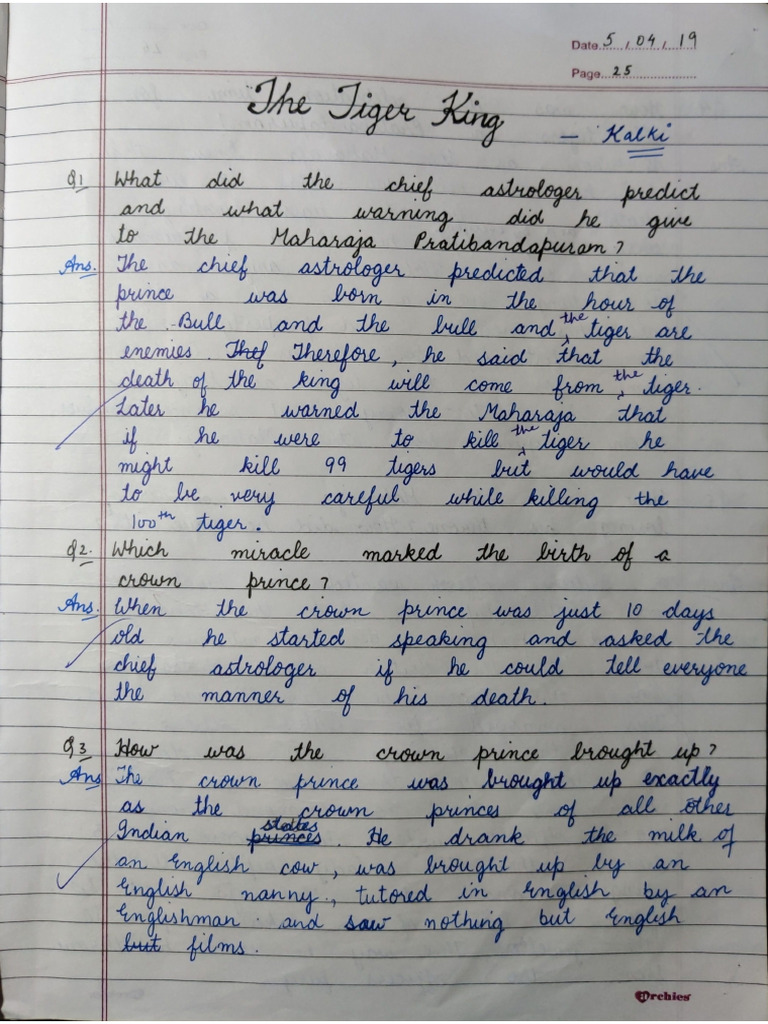 Date 5 / 04 / 19
Page 25
The Tiger King
- Kalki
Q1 What did the chief astrologer predict
and what warning did he give
to the Maharaja Pratibandapuram?
Ans. The chief astrologer predicted that the
prince was born in the hour of
the Bull and the bull and the tiger are
enemies. Thef Therefore, he said that the
death of the king will come from the tiger.
Later he warned the Maharaja that
if he were to kill the tiger he
might kill 99 tigers but would have
to be very careful while killing the
100th tiger.
Q2. Which miracle marked the birth of a
crown prince?
Ans. When the crown prince was just 10 days
old he started speaking and asked the
chief astrologer if he could tell everyone
the manner of his death.
Q3 How was the crown prince brought up?
Ans The crown prince was brought up exactly
as the crown princes of all other
Indian princes states. He drank the milk of
an English cow, was brought up by an
English nanny, tutored in English by an
Englishman and saw nothing but English
but films.
Archies